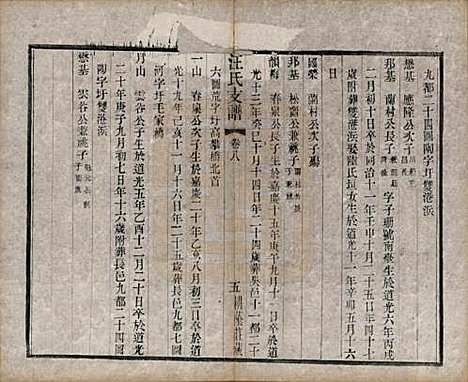 九都二十四圖南字圩雙港浜
懋基 應隆公次子
邦基 蘭村公長子 字子珊號南臺生於道光六年丙戌
二月初十日卒於同治十一年壬申十月二十五日年四十七
歲附葬雙港浜娶陸氏垣女生於道光十一年辛卯五月十六
日
國榮 蘭村公次子殤
邦基 松園公兼祧子 蘭村公長
韻梅 春泉公長子生於嘉慶十五年庚午九月十一日卒於道
光十三年癸巳十月十四日年二十四歲葬長邑十一都二十
六圖荒字圩高攀橋北首
汪氏支譜 卷八 五
一山 春泉公次子生於嘉慶二十年乙亥八月初三日卒於道
光十九年己亥十一月十六日年二十五歲葬長邑九都七圖
河字圩毛家橋
月山 雲谷公長子生於道光五年乙酉十二月二十日卒於道光
二十年庚子九月初七日年十六歲附葬長邑九都二十四圖
陽字圩雙港浜
懋基 雲谷公兼祧子